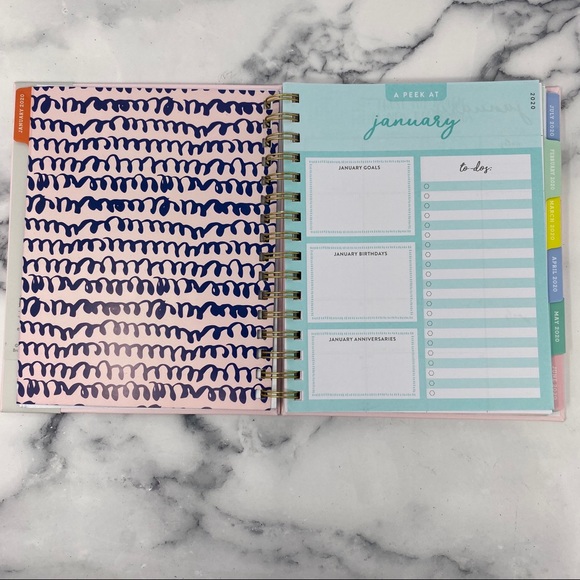 JANUARY 2020
A PEEK AT
january
2020
JANUARY GOALS
to-dos:
JANUARY BIRTHDAYS
JANUARY ANNIVERSARIES
JULY 2020
FEBRUARY 2020
MARCH 2020
APRIL 2020
MAY 2020